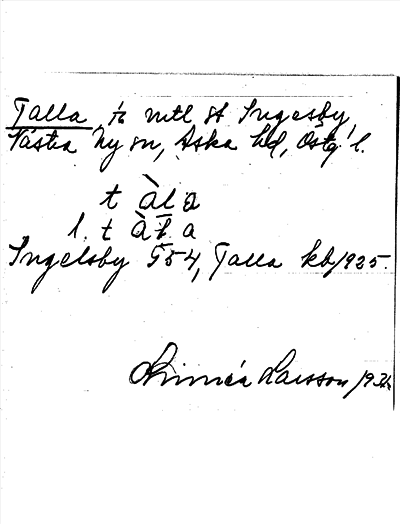 Talla, ts mtl st Ingesby,
Västra Ny sn, Aska hd, Östg. l.
t àl a
l. t àl. a
Ingelsby 554, Talla kb 1925.
Linnéa Larsson 1934